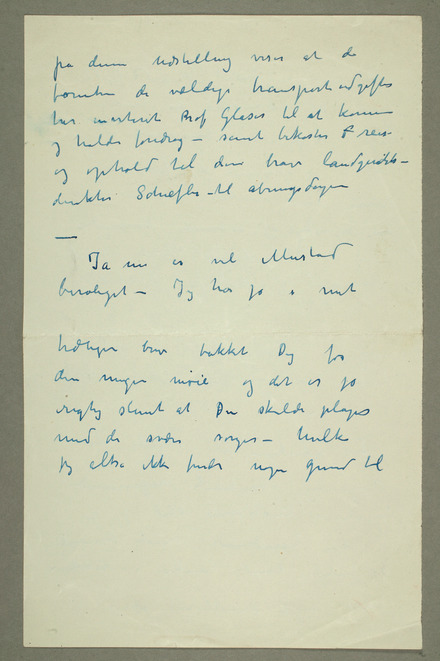 på denne udstilling viser at de
foruden de vældige transportudgifter
har inviteret Prof Glaser til at komme
og holde foredrag – samt bekostes reise
og ophold til den brave landgerichts-
direktør Schiefler – til åbningsdagen
—
Ja nu er vel Mustad
beroliget – Jeg har jo i mit
tidligere brev takket Dig for
den megen møie og det er jo
rigtig slemt at Du skulde plages
med de svære sorger – hvilke
jeg altså ikke finder nogen grund til